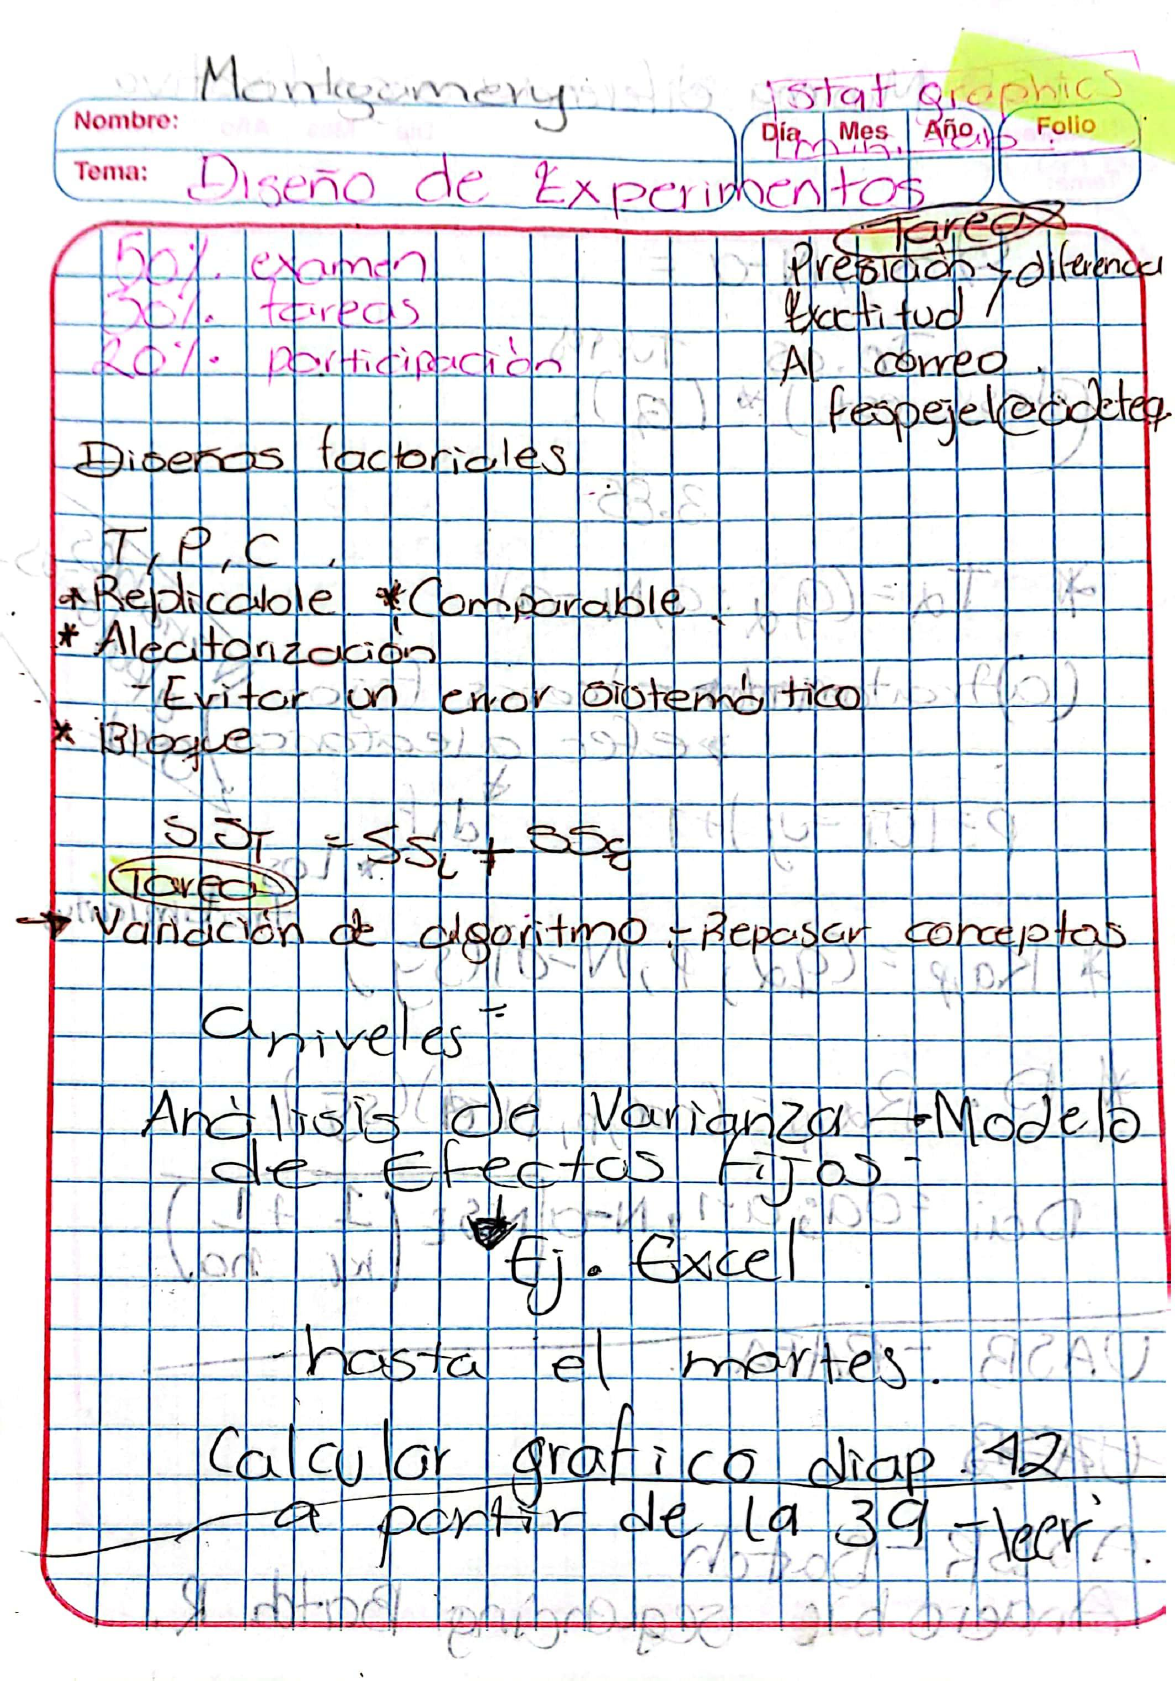 Montgomery
stat graphics
Nombre:
Día Mes Año Folio
Tema: Diseño de Experimentos
Tarea
50%. examen
Presición y diferencia
30%. tareas
Exactitud
20%. participación
Al correo.
fespejel@cideteq
Diseños factoriales
T, P, C.
*Replicable *Comparable.
* Aleatorización
- Evitar un error sistemático
* Bloque
SST = SSL + SSE
Tarea
→ Variación de algoritmo - Repasar conceptos
aniveles =
Análisis de Varianza → Modelo
de Efectos Fijos -
Ej. Excel
- hasta el martes.
Calcular grafico diap. 42
a partir de la 39 - leer.